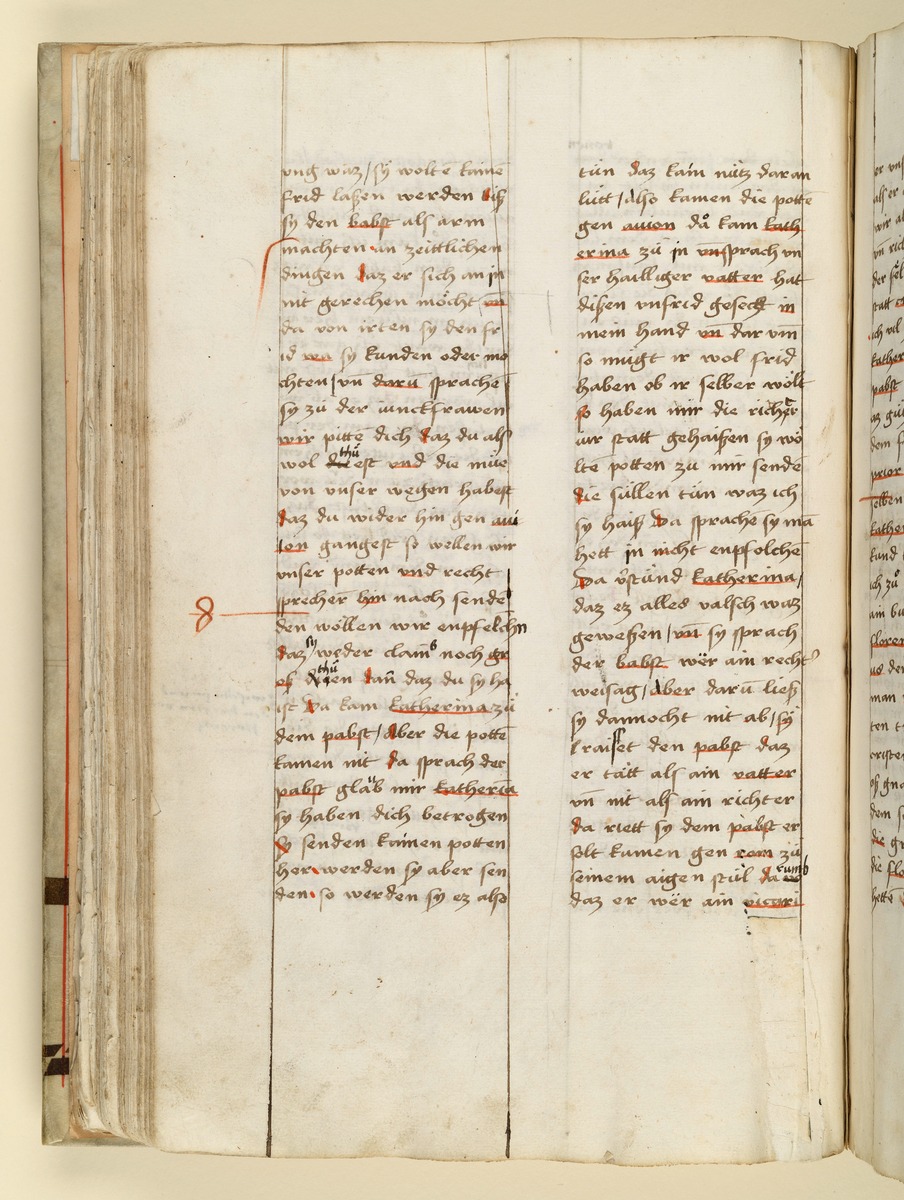 vng waz / sÿ woltē kainē
frid laßen werden biß
sy den babst als arm
machten an zeittlichen
dingen daz er sich an jn
nit gerechen möcht vn̄
da von irten sy den fr
id wa sy kunden oder mo
chten / vn̄ darū sprachē
sy zu der iunckfrawen
wir pittē dich daz du als
wol thüest vnd die müe
von vnser wegen habest
daz du wider hin gen aui
ion gangest so wellen wir
vnser potten vnd recht
sprecher hin nach sendē
den wöllen wir enpfelchn
daz sy weder clain noch gr
oß thüen dan̄ daz du sy ha
ist Da kam katherina zü
dem pabst / Aber die pottē
kamen nit da sprach der
pabst gläub mir katherīa
sy haben dich betrogen
Sy senden kainen potten
her werden sy aber sen
den so werden sy ez also
tün daz kain nütz daran
lütt / also kamen die pottē
gen auion da kam kath
erina zü jn vn̄ sprach vn
ser hailliger vatter hat
dißen vnfrid geseczt in
mein hand vn̄ dar vm̄
so mügt ir wol frid
haben ob ir selber wölt
so haben mir die richer
iur statt gehaißen sy wö
ltē potten zu mir sendē
die süllen tün waz ich
sy haiß Da sprachē sy mā
hett jn nicht enpfolchē
Da v̓stünd katherina /
daz ez alles valsch waz
geweßen / vn̄ sy sprach
der babst wër ain recht̓
weisag / Aber darū ließ
sy dannocht nit ab / sÿ
lraißet den pabst daz
er tätt als ain vatter
vn̄ nit als ain richter
da riett sy dem pabst er
solt kumen gen rom zü
seinem aigen stül darumb
daz er wër ain vicari